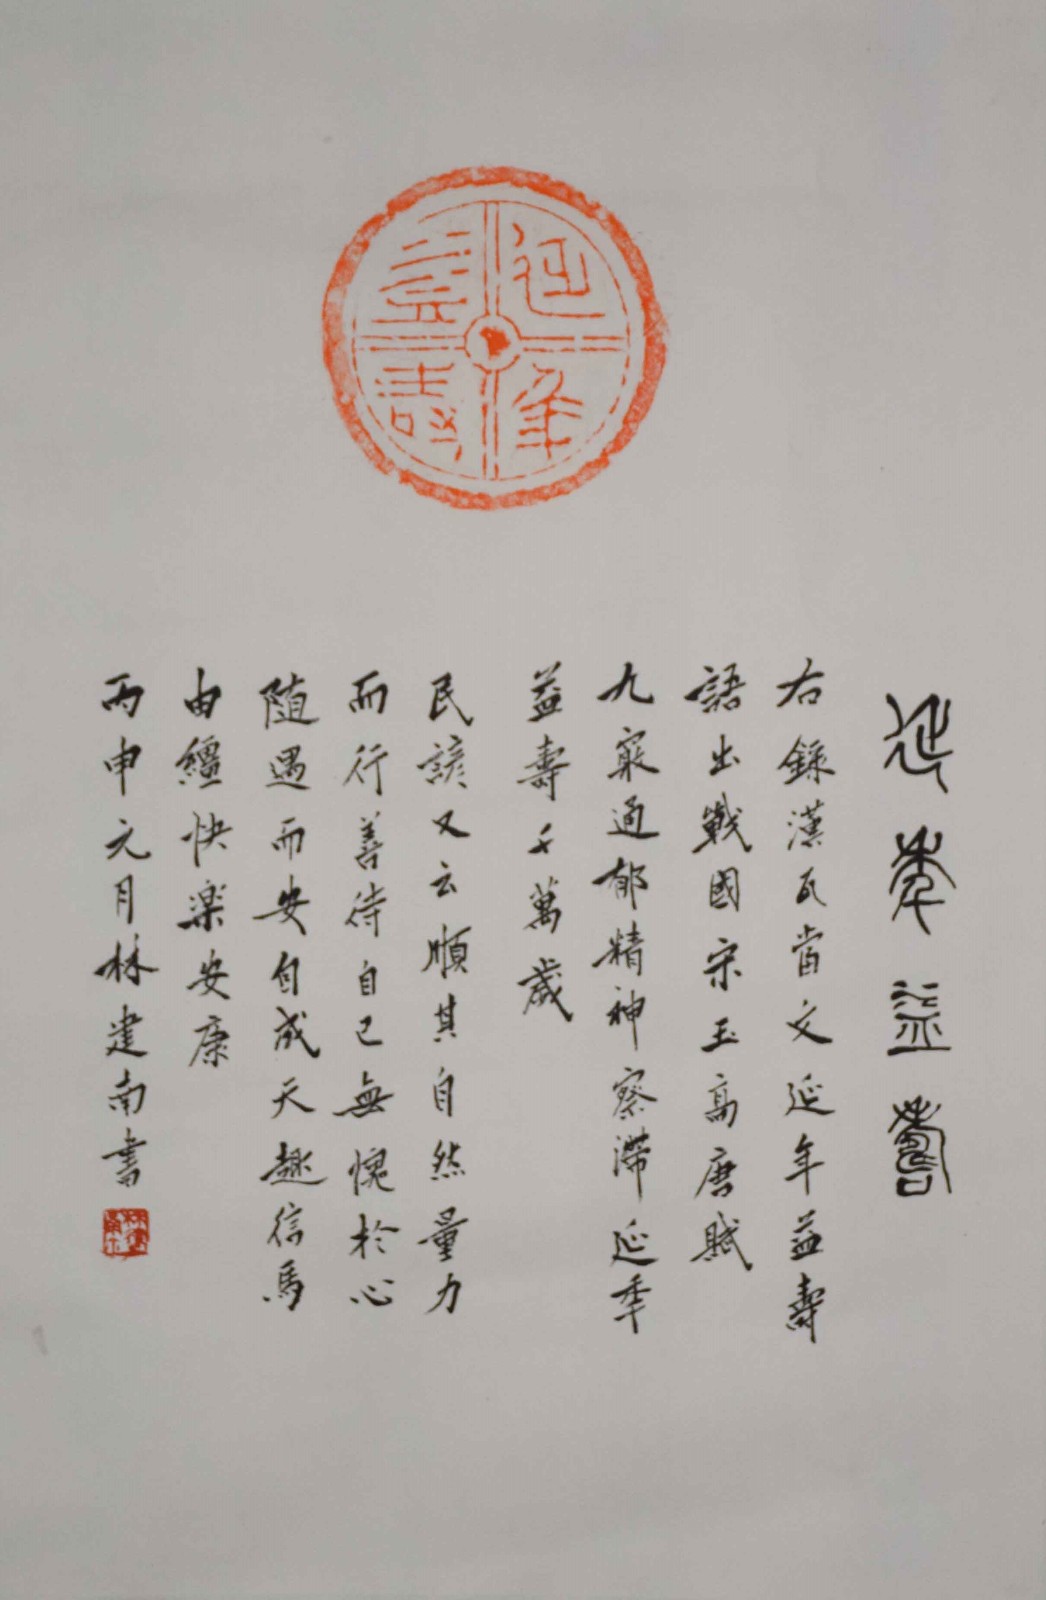 延年益壽
延年益壽
右錄漢瓦當文延年益壽
語出戰國宋玉高唐賦
九竅通郁精神察滯延季
益壽千萬歲
民諺又云順其自然量力
而行善待自己無愧於心
随遇而安自成天趣信馬
由繮快楽安康
丙申元月林建南書